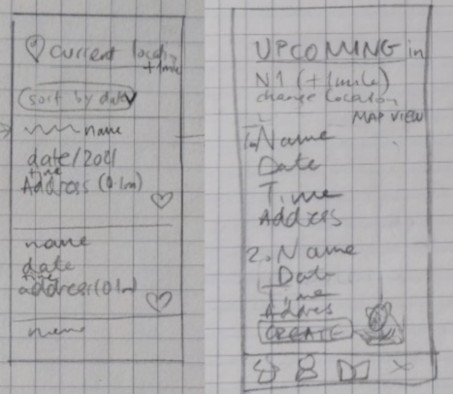 current location
+1mile
sort by date
name
date/2021
time
Address (0.1m)
name
date
time
address (0.1m)
name
UPCOMING in
N1 (+1mile)
change location
MAP VIEW
1. Name
Date
Time
Address
2. Name
Date
Time
Address
CREATE